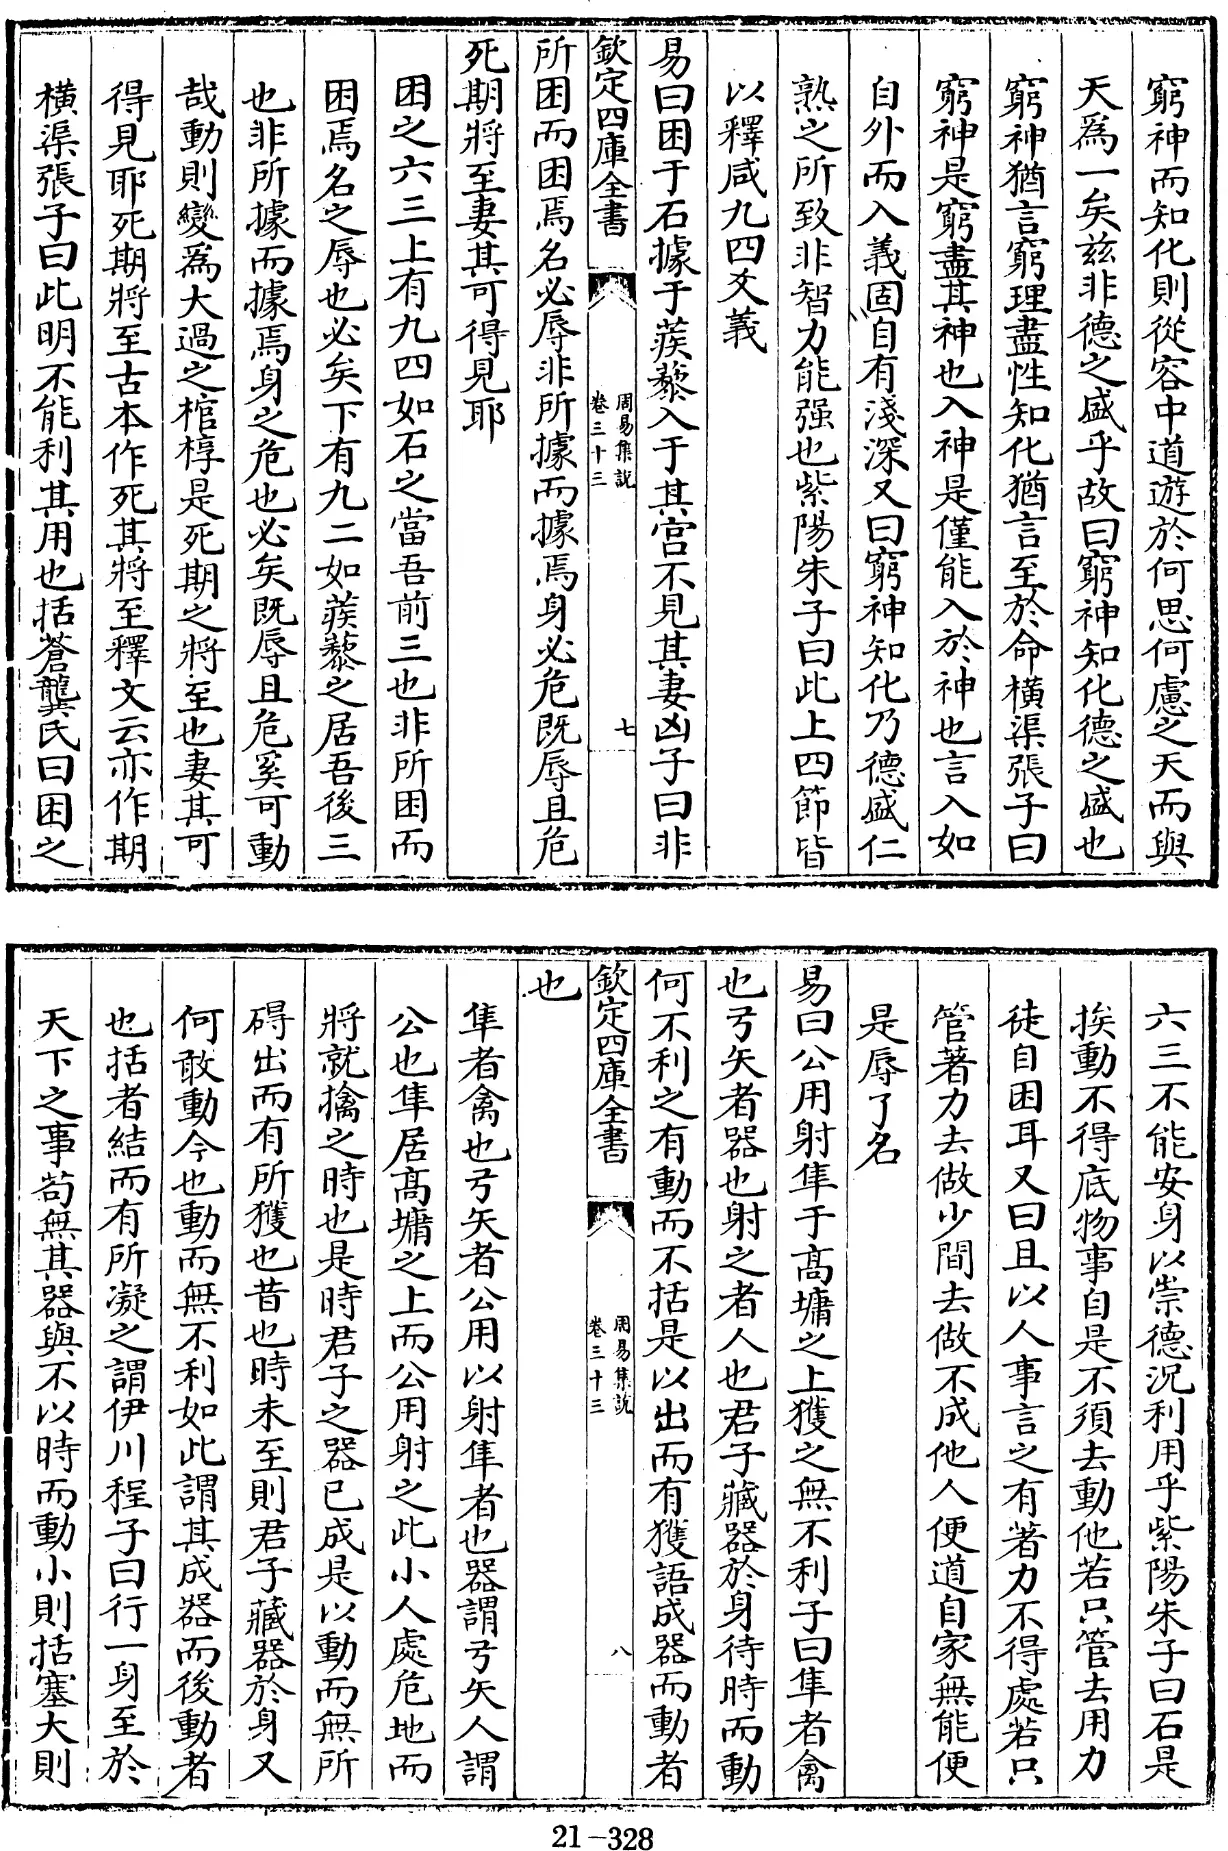 窮神而知化則從容中道遊於何思何慮之天而與
天爲一矣兹非德之盛乎故曰窮神知化德之盛也
窮神猶言窮理盡性知化猶言至於命橫渠張子曰
窮神是窮盡其神也入神是僅能入於神也言入如
自外而入義固自有淺深又曰窮神知化乃德盛仁
熟之所致非智力能强也紫陽朱子曰此上四節皆
以釋咸九四爻義
易曰困于石據于蒺藜入于其宫不見其妻凶子曰非
欽定四庫全書
周易集說
卷三十三
七
所困而困焉名必辱非所據而據焉身必危既辱且危
死期將至妻其可得見耶
困之六三上有九四如石之當吾前三也非所困而
困焉名之辱也必矣下有九二如蒺藜之居吾後三
也非所據而據焉身之危也必矣既辱且危奚可動
哉動則變爲大過之棺椁是死期之將至也妻其可
得見耶死期將至古本作死其將至釋文云亦作期
橫渠張子曰此明不能利其用也括蒼龔氏曰困之
六三不能安身以崇德況利用乎紫陽朱子曰石是
挨動不得底物事自是不須去動他若只管去用力
徒自困耳又曰且以人事言之有著力不得處若只
管著力去做少間去做不成他人便道自家無能便
是辱了名
易曰公用射隼于高墉之上獲之無不利子曰隼者禽
也弓矢者器也射之者人也君子藏器於身待時而動
何不利之有動而不括是以出而有獲語成器而動者
欽定四庫全書
周易集說
卷三十三
八
也
隼者禽也弓矢者公用以射隼者也器謂弓矢人謂
公也隼居高墉之上而公用射之此小人處危地而
將就擒之時也是時君子之器已成是以動而無所
碍出而有所獲也昔也時未至則君子藏器於身又
何敢動今也動而無不利如此謂其成器而後動者
也括者結而有所凝之謂伊川程子曰行一身至於
天下之事苟無其器與不以時而動小則括塞大則
21-328